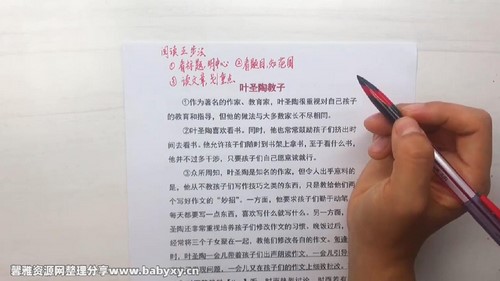 阅读三步法
①看标题,明中心 ②看题目,知范围
③读文章,划重点
叶圣陶教子
①作为著名的作家、教育家,叶圣陶很重视对自己孩
的教育和指导,但他的做法与大多数家长不尽相同。
②叶圣陶喜欢看书。同时,他也常常鼓励孩子们挤出时
间去看书。他允许孩子们随时到书架上拿书,至于看什么书,
他并不过多干涉,只要孩子们自己愿意读就行。
③众所周知,叶圣陶是知名的作家,但令人出乎意料的
是,他从不教孩子们写作技巧之类的东西,只是教给他们两
个写好作文的“妙招”。一方面,他要求孩子们勤于动笔,
每天都要写一点东西,喜欢写什么就写什么。另一方面,
圣陶还非常重视培养孩子们修改作文的习惯。晚饭过后,
经常将三个子女聚在一起,教他们修改各自的作文。
时,叶圣陶一会儿带着孩子们出声朗读作文,一会儿引导
现问题,一会儿又在孩子们的作文上
馨雅资源网整理分享www.babyxy.cn